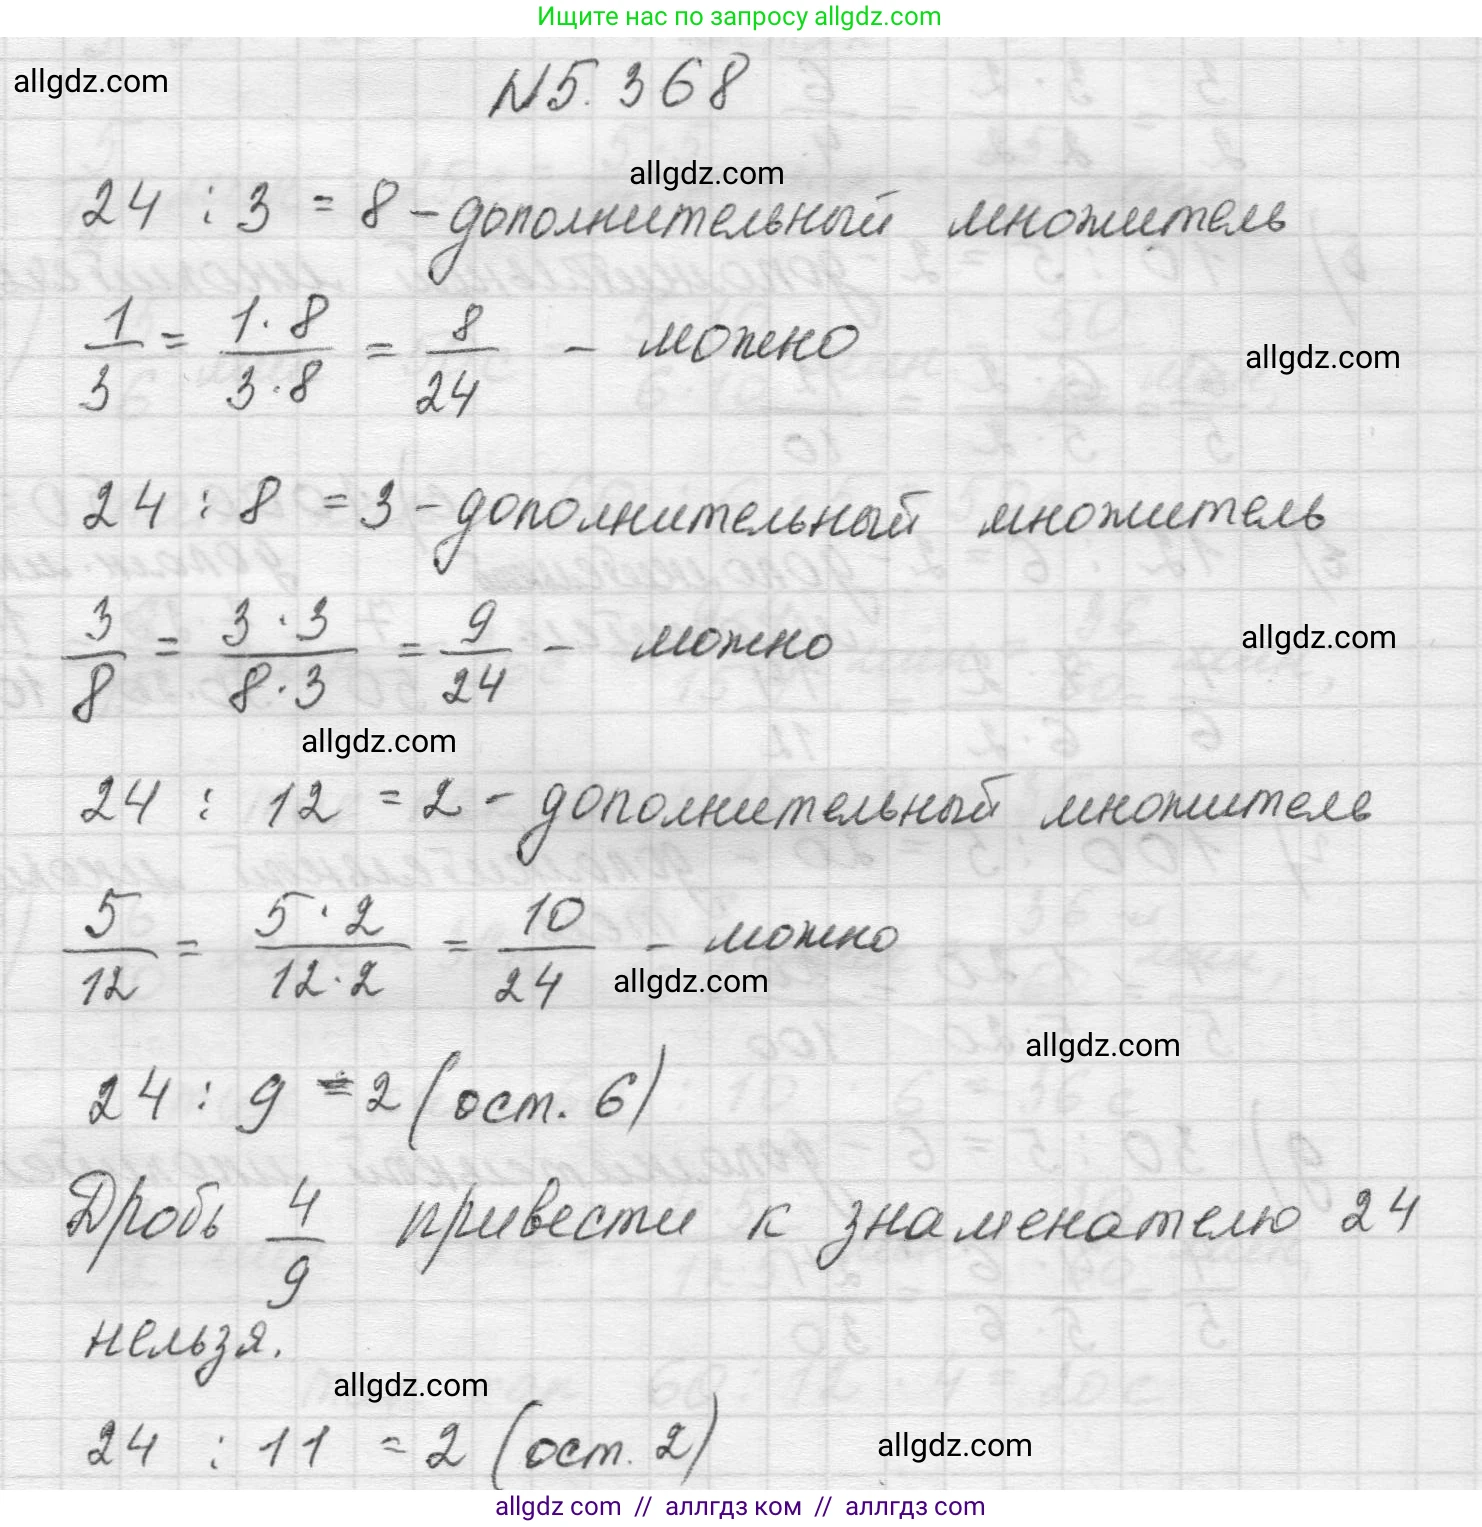 Ищите нас по запросу allgdz.com
allgdz.com
N 5. 368
allgdz.com
24 : 3 = 8 – дополнительный множитель
1/3 = 1·8/3·8 = 8/24 – можно
allgdz.com
24 : 8 = 3 – дополнительный множитель
3/8 = 3·3/8·3 = 9/24 – можно
allgdz.com
allgdz.com
24 : 12 = 2 – дополнительный множитель
5/12 = 5·2/12·2 = 10/24 – можно
allgdz.com
allgdz.com
24 : 9 = 2 (ост. 6)
Дробь 4/9 привести к знаменателю 24
нельзя.
allgdz.com
24 : 11 = 2 (ост. 2)
allgdz.com
allgdz com // аллгдз ком // аллгдз com